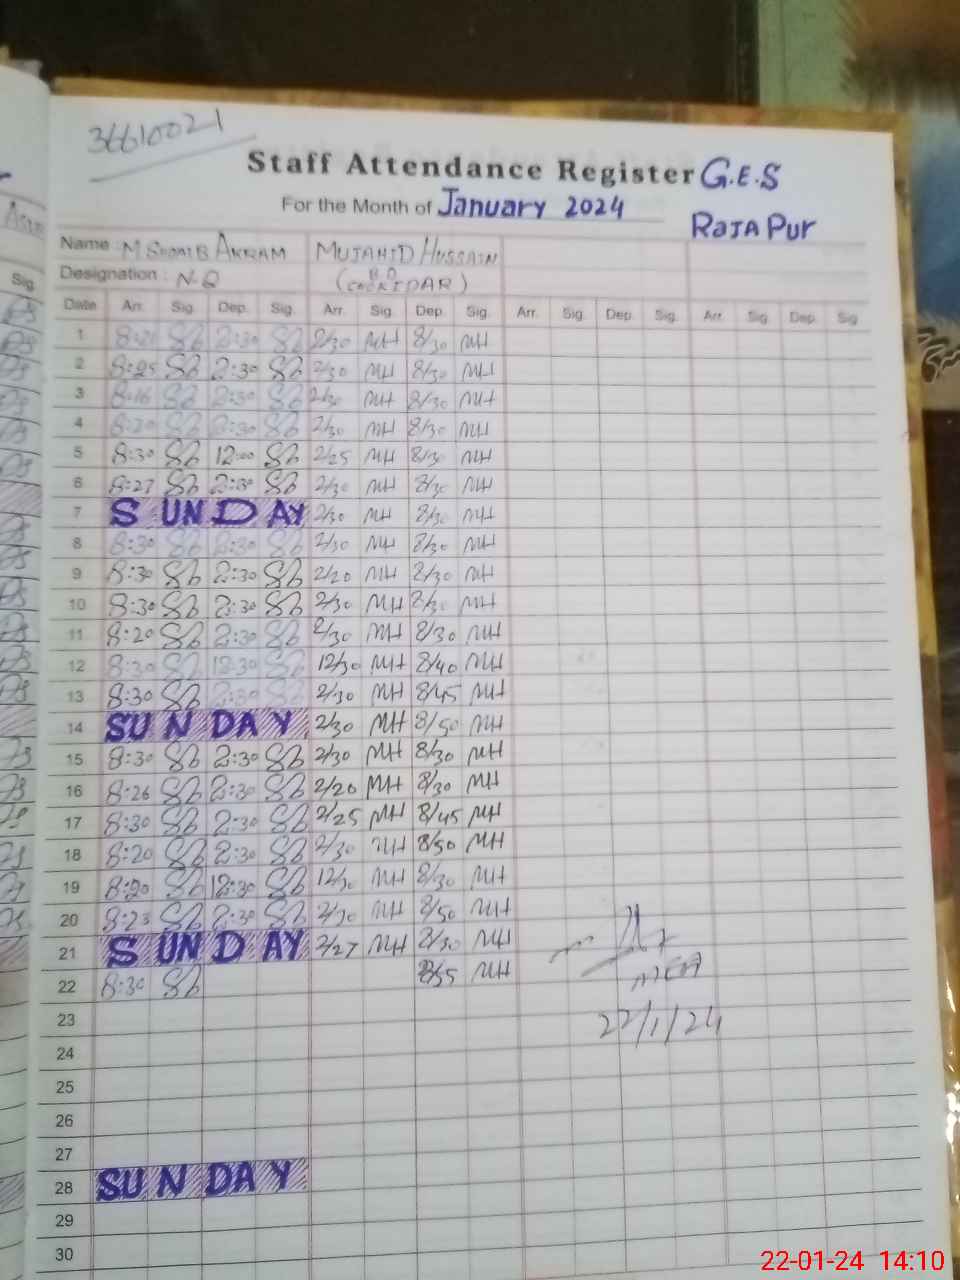 36610021
Staff Attendance Register G.E.S
For the Month of January 2024
RAJA PUR
Name : M SHOAIB AKRAM MUJAHID HUSSAIN
Designation : N-Q
Date Arr. Sig. Dep. Sig. Arr. Sig. Dep. Sig. Arr. Sig. Dep. Sig. Arr. Sig. Dep. Sig
1 2:30 2/30 MH 8/30 MH
2 8:25 Sb 2:30 Sb 2/30 MH 8/30 MH
3 8:16 Sb 2:30 Sb 2/30 MH 8/30 MH
4 Sb 2:30 Sb 2/30 MH 8/30 MH
5 8:30 Sb 12:00 Sb 2/25 MH 8/30 MH
6 8:27 Sb 2:30 Sb 2/30 MH 8/30 MH
7 SUNDAY 2/30 MH 8/30 MH
8 8:30 Sb 2:30 Sb 2/30 MH 8/30 MH
9 8:30 Sb 2:30 Sb 2/20 MH 8/30 MH
10 8:30 Sb 2:30 Sb 2/30 MH 8/30 MH
11 8:20 Sb 2:30 Sb 2/30 MH 8/30 MH
12 8:30 Sb 12:30 Sb 12/30 MH 8/40 MH
13 8:30 Sb 2:30 Sb 2/30 MH 8/45 MH
14 SUNDAY 2/30 MH 8/50 MH
15 8:30 Sb 2:30 Sb 2/30 MH 8/30 MH
16 8:26 Sb 2:30 Sb 2/20 MH 8/30 MH
17 8:30 Sb 2:30 Sb 2/25 MH 8/45 MH
18 8:20 Sb 2:30 Sb 2/30 MH 8/50 MH
19 8:20 Sb 12:30 Sb 12/30 MH 8/30 MH
20 8:23 Sb 2:30 Sb 2/30 MH 8/50 MH
21 SUNDAY 2/27 MH 8/30 MH
22 8:30 Sb 8/35 MH
MEA
23
22/1/24
24
25
26
27
28 SUNDAY
29
30
22-01-24 14:10